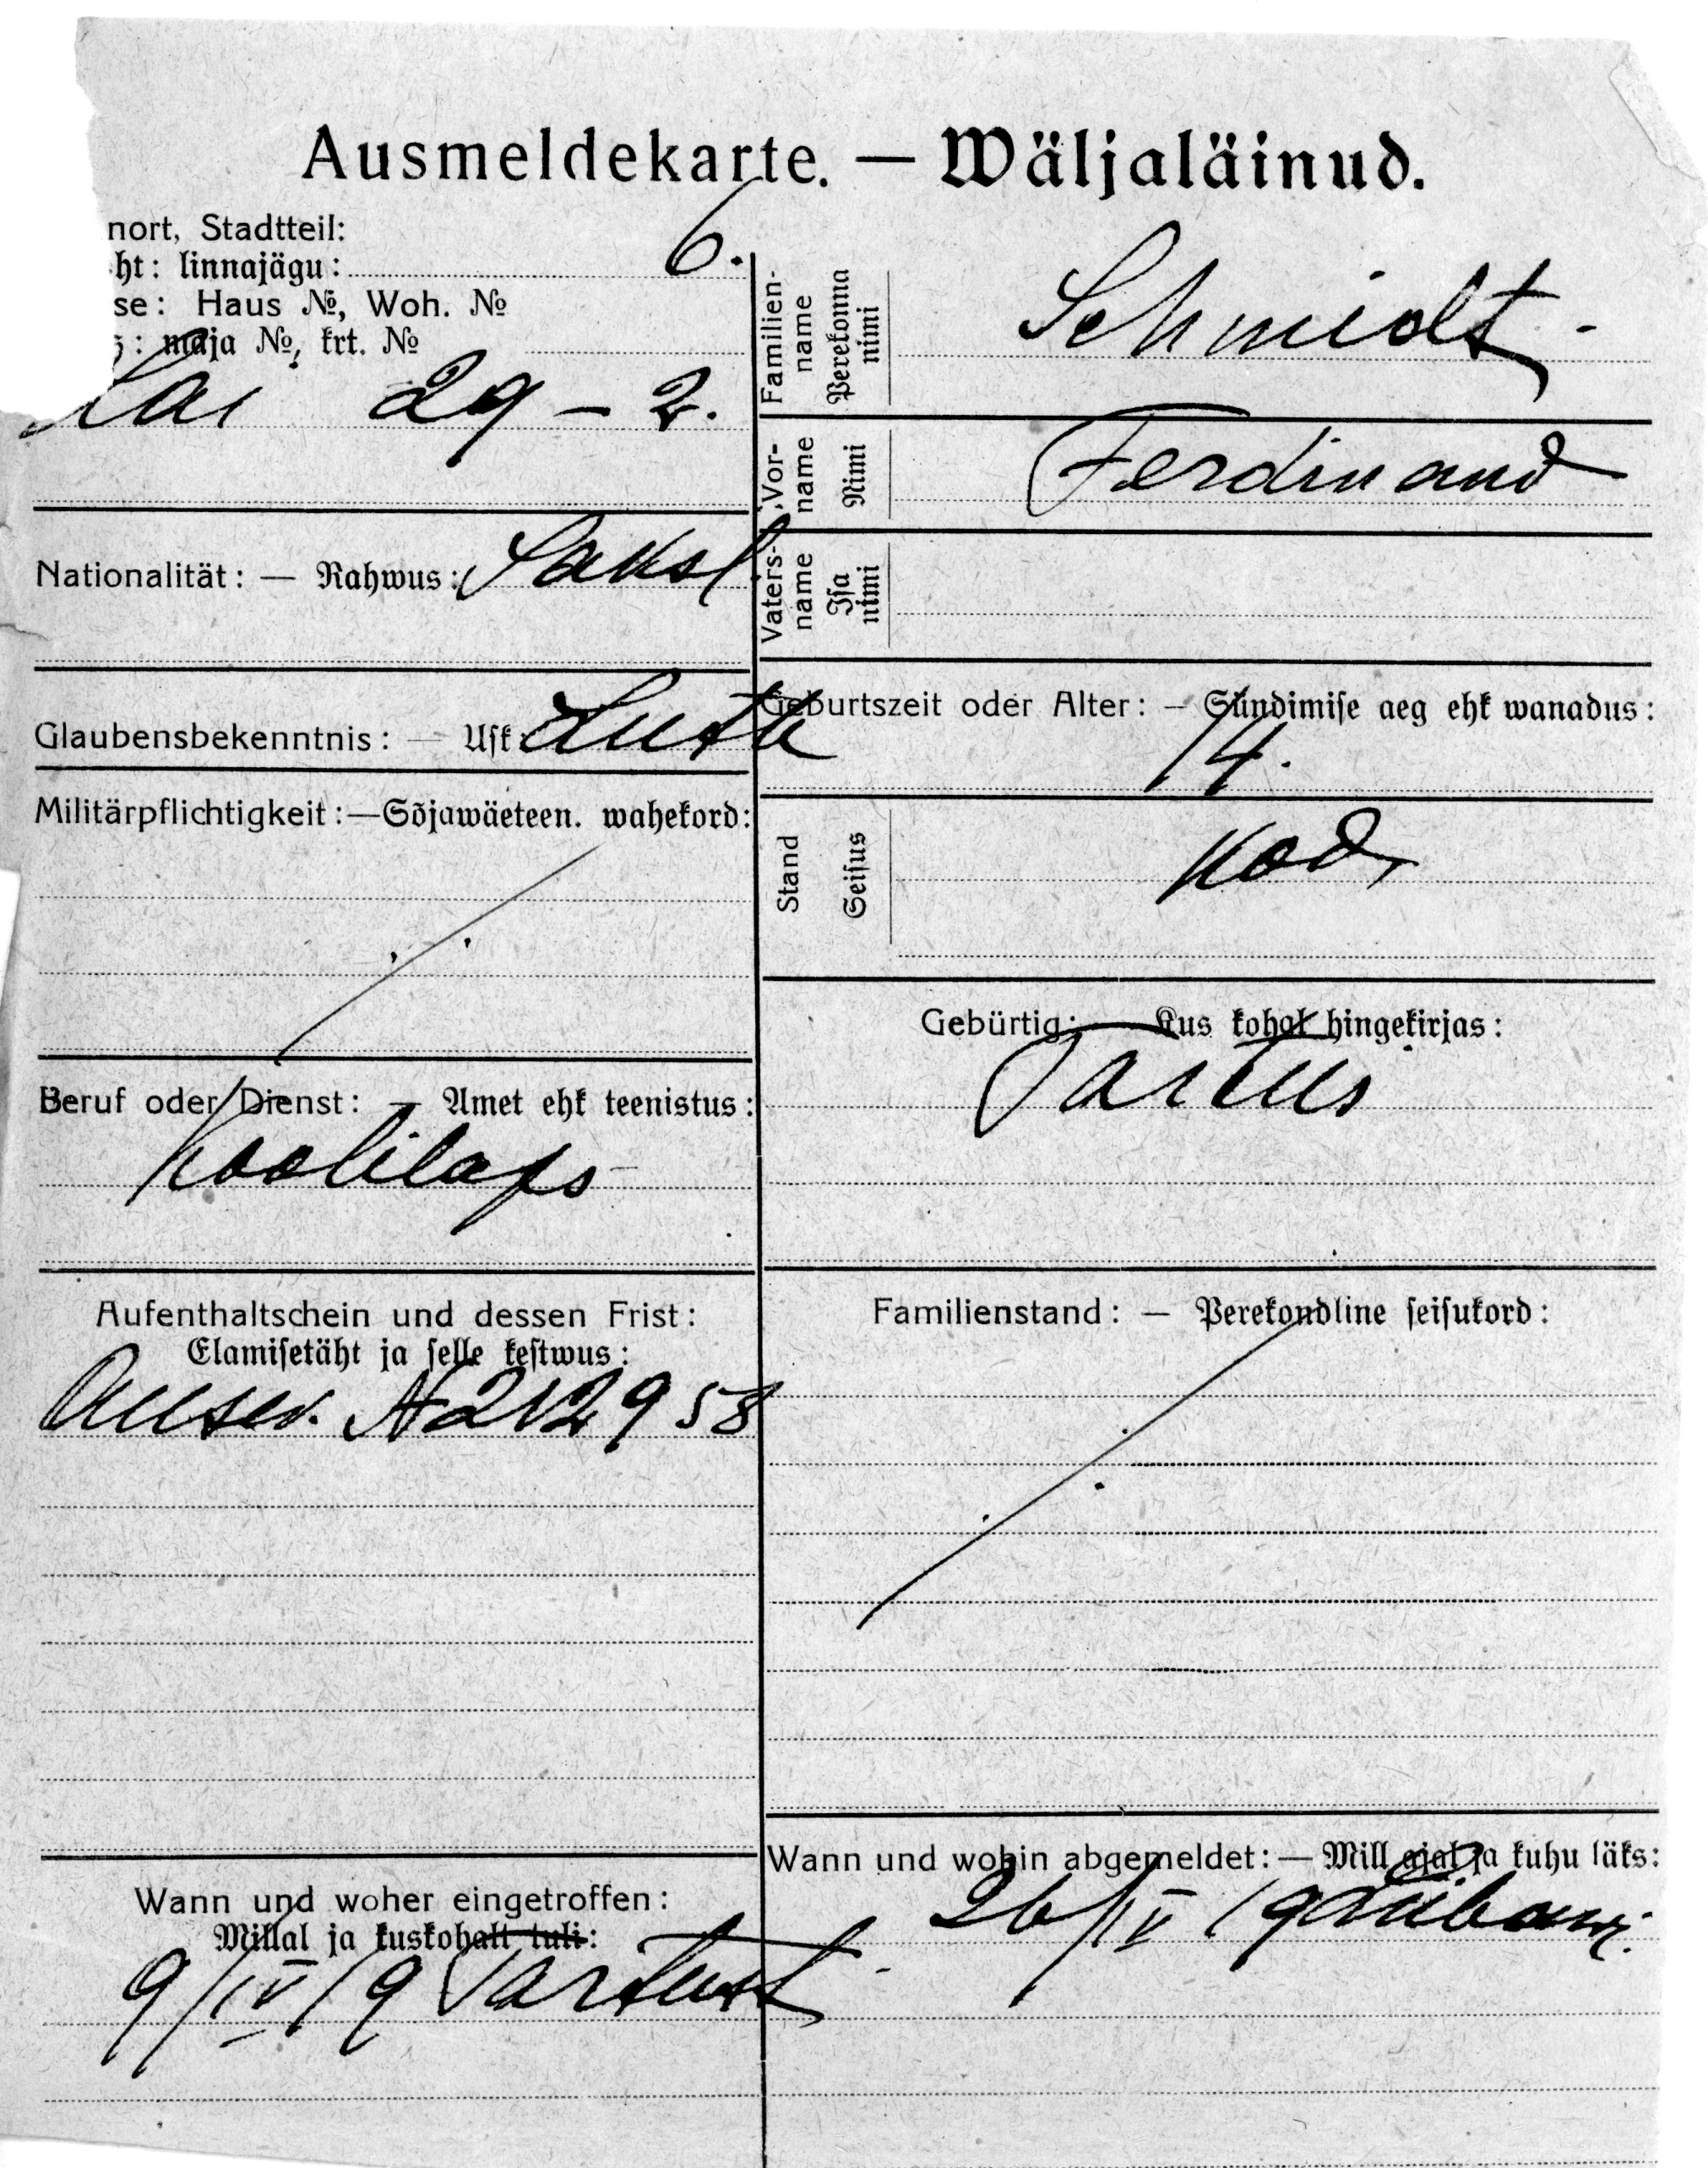 Ausmeldekarte. — Wäljaläinud.
nort, Stadtteil:
ht: linnajägu: 6.
se: Haus №, Woh. №
: maja №, krt. №
Lai 29 – 2.
Nationalität: — Rahwus: Saksl
Glaubensbekenntnis: — Usk: Luth
Militärpflichtigkeit: — Sõjawäeteen. wahekord:
Beruf oder Dienst: — Amet ehk teenistus:
Koolilaps
Aufenthaltschein und dessen Frist:
Elamisetäht ja selle kestwus:
Ausw. № 212958
Wann und woher eingetroffen:
Millal ja kuskohalt tuli:
9/IV 19 Tartust
Familien-name Perekonna nimi Schmidt
Vor-name Nimi Ferdinand
Vaters-name Isa nimi
Geburtszeit oder Alter: — Sündimise aeg ehk wanadus:
14.
Stand Seisus Kod.
Gebürtig: Kus kohal hingekirjas:
Tartus
Familienstand: — Perekondline seisukord:
Wann und wohin abgemeldet: — Mill ajal ja kuhu läks:
26/IV 19